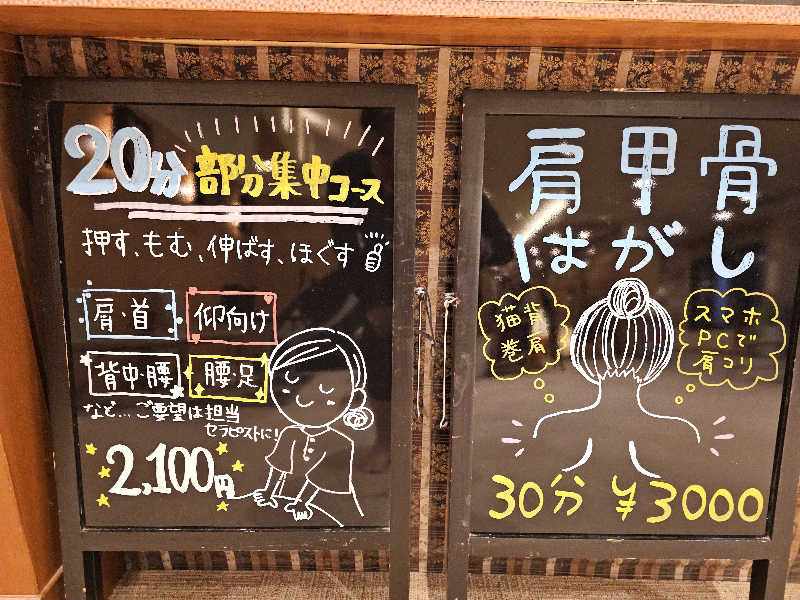 20分 部分集中コース
押す、もむ、伸ばす、ほぐす
肩・首
仰向け
背中・腰
腰・足
など… ご要望は担当
セラピストに!
2,100円
肩甲骨
はがし
猫背
巻肩
スマホ
PCで
肩コリ
30分 ¥3000